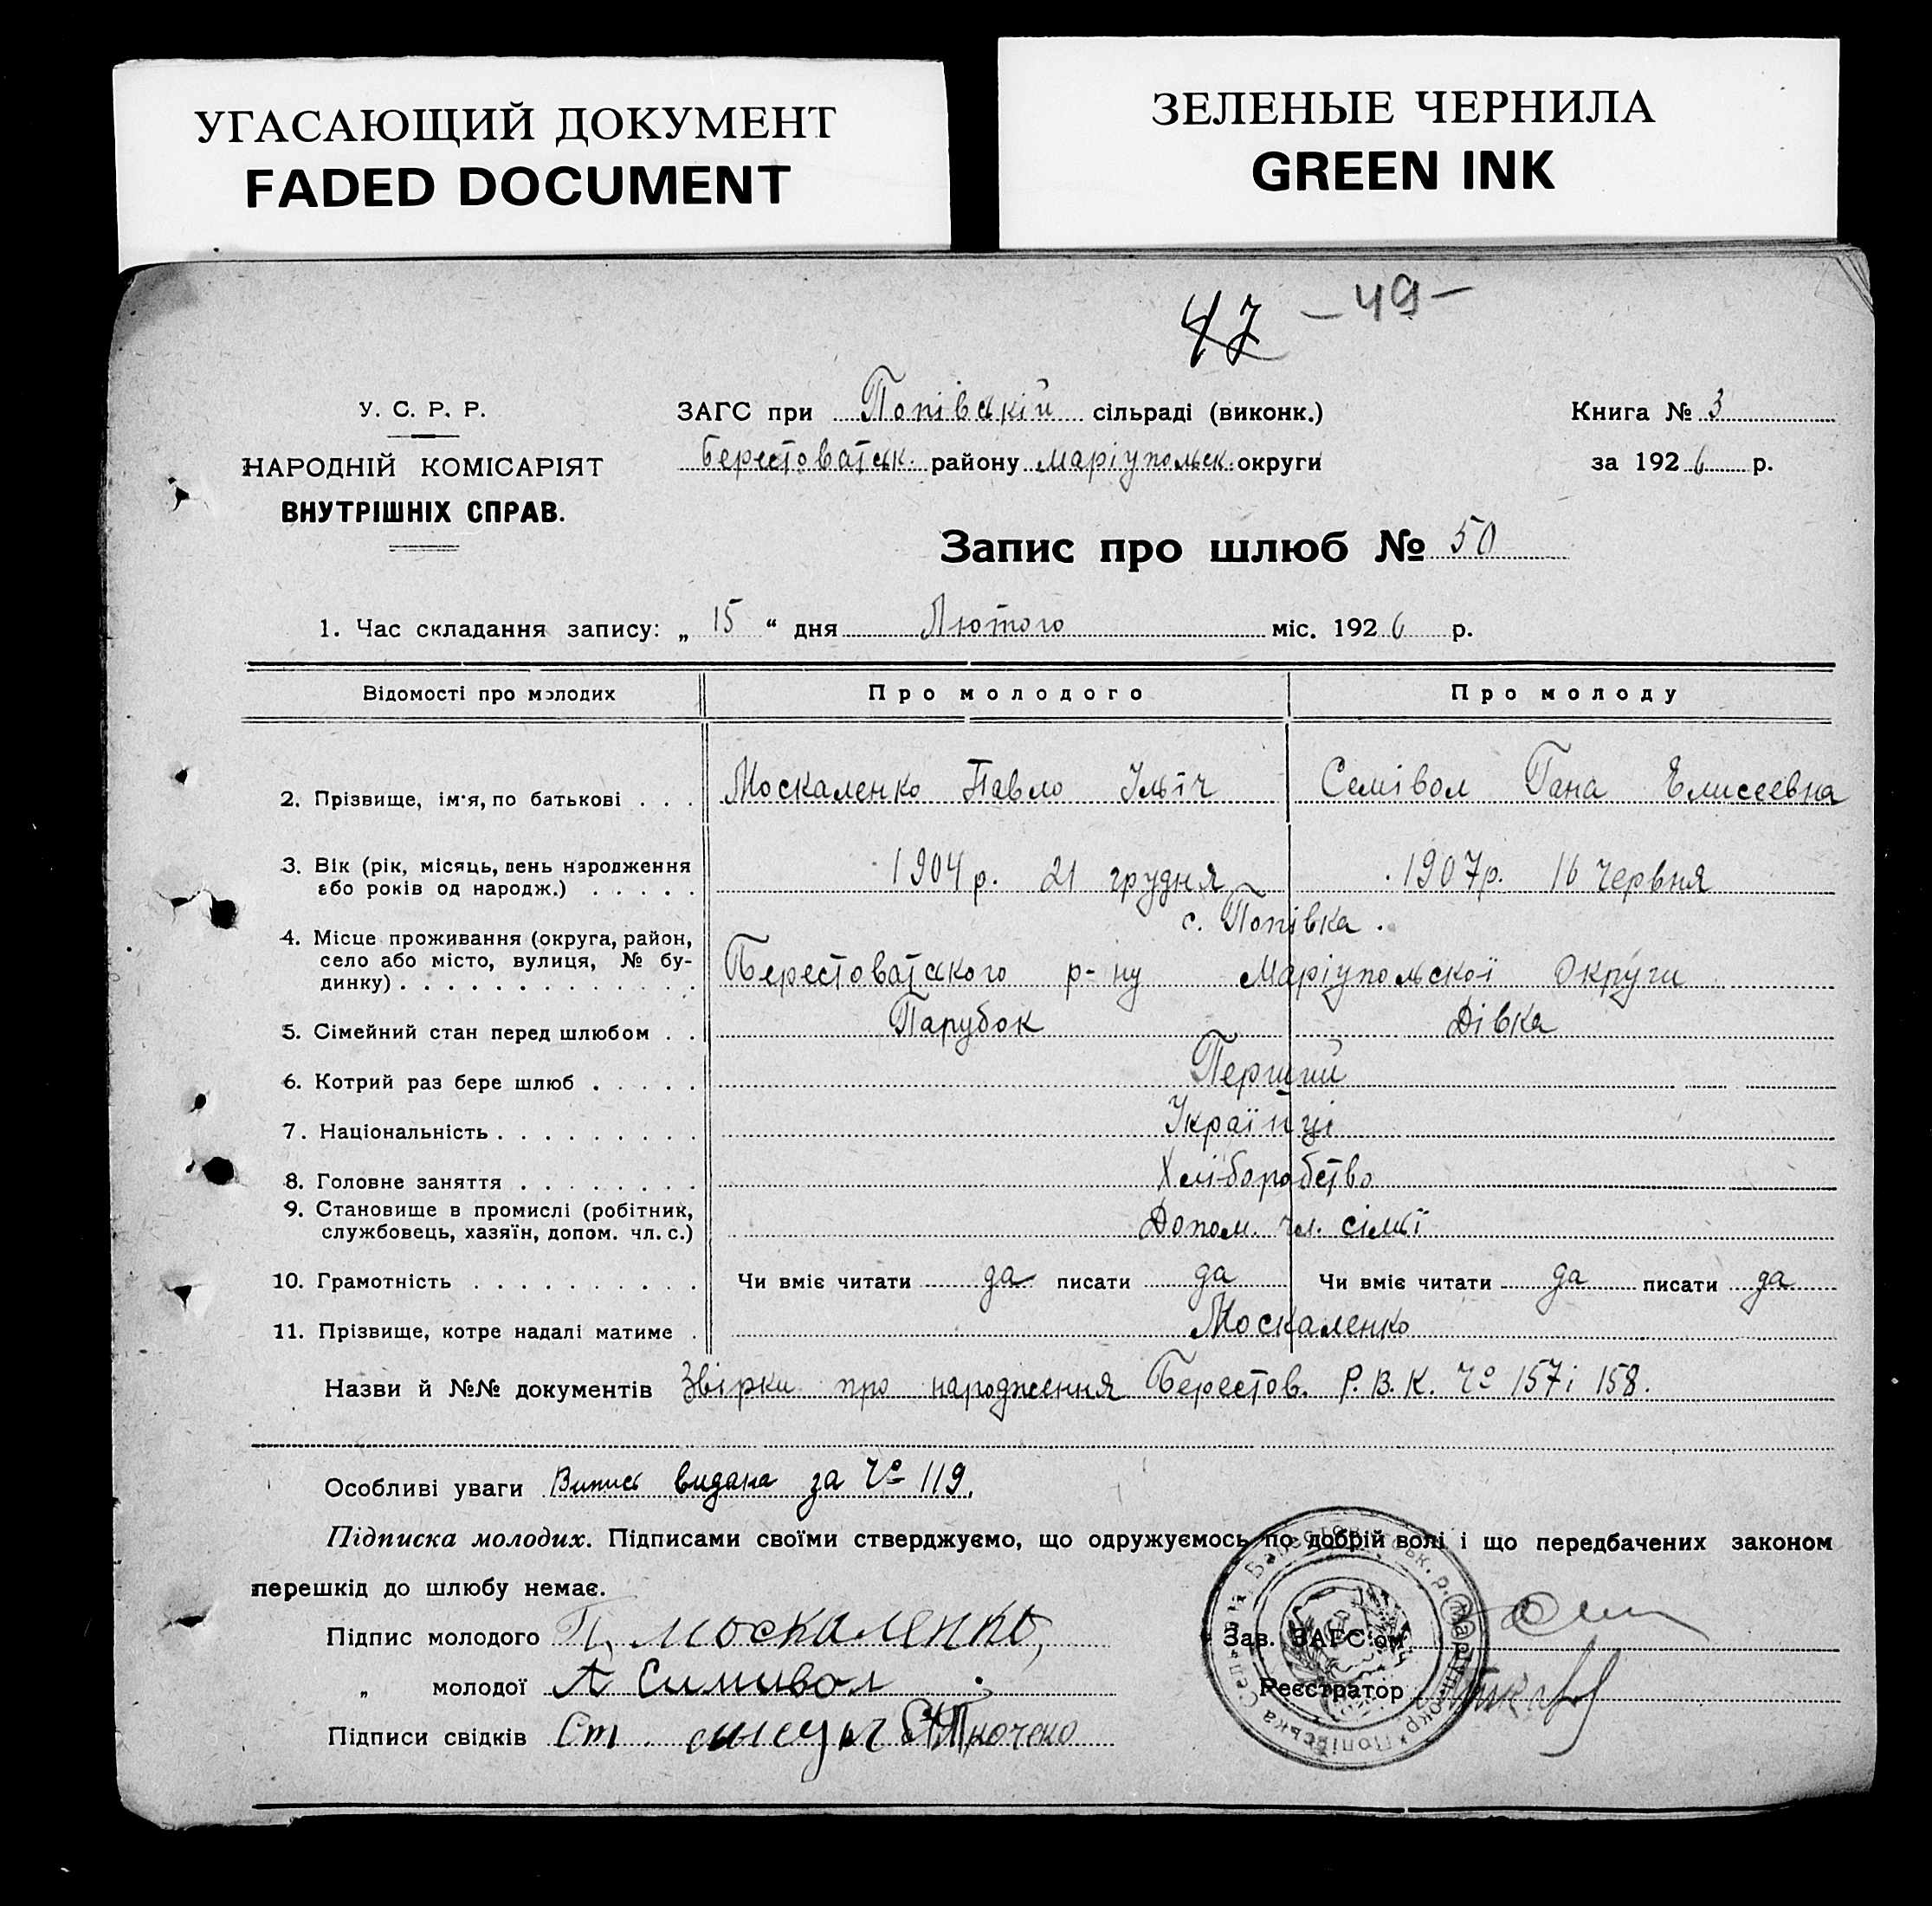 УГАСАЮЩИЙ ДОКУМЕНТ
FADED DOCUMENT
ЗЕЛЕНЫЕ ЧЕРНИЛА
GREEN INK
47 – 49 –
У. С. Р. Р.
НАРОДНІЙ КОМІСАРІЯТ
ВНУТРІШНІХ СПРАВ.
ЗАГС при Попівській сільраді (виконк.)
Берестоватськ. району Маріупольськ. округи
Книга № 3
за 1926 р.
Запис про шлюб № 50
1. Час складання запису: „ 15 “ дня Лютого міс. 1926 р.
Відомості про молодих Про молодого Про молоду
2. Прізвище, ім'я, по батькові . . . Москаленко Павло Ільіч Семівол Гана Елисеевна
3. Вік (рік, місяць, день народження
або років од народж.) . . . . . 1904 р. 21 грудня 1907 р. 16 червня
с. Попівка.
4. Місце проживання (округа, район,
село або місто, вулиця, № бу-
динку) . . . . . . . . . . . . . Берестоватського р-ну Маріупольскоі Округи
5. Сімейний стан перед шлюбом . . Парубок Дівка
6. Котрий раз бере шлюб . . . . . Перший
7. Національність . . . . . . . . . Українці
8. Головне заняття . . . . . . . . Хліборобство
9. Становише в промислі (робітник,
службовець, хазяїн, допом. чл. с.) Допом. чл. сімї
10. Грамотність . . . . . . . . . . Чи вміє читати да писати да Чи вміє читати да писати да
11. Прізвище, котре надалі матиме . Москаленко
Назви й №№ документів Звірки про народження Берестов. Р.В.К. Чо 157 і 158.
Особливі уваги Випись видана за Чо 119.
Підписка молодих. Підписами своїми стверджуємо, що одружуємось по добрій волі і що передбачених законом
перешкід до шлюбу немає.
Підпис молодого П. Москаленко,
„ молодої А Симивол
Підписи свідків Ст.
Зав. ЗАГС'ом
Реєстратор